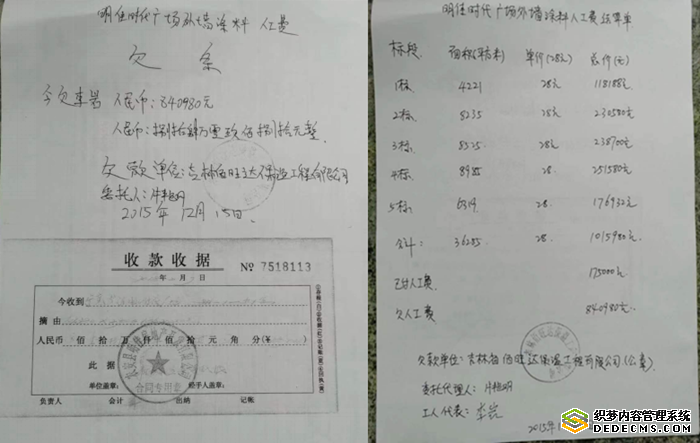 明佳时代广场外墙涂料 人工费
欠 条
今欠李岩 人民币:840980元
人民币:捌拾肆万零玖佰捌拾元整
欠款单位:吉林佰旺达保温工程有限公司
委托人:牛艳明
2015年 12月 15日.
收款收据 № 7518113
年 月 日
今收到
摘由
人民币 佰 拾 万 仟 佰 拾 元 角 分(¥ )
此据
单位盖章: 经手人盖章:
合同专用章
负责人 会计 出纳 记帐
明佳时代广场外墙涂料人工费结算单
标段 面积(平方米) 单价(28元) 总价(元)
1栋 4221 28元 118188元
2栋 8235 28元 230580元
3栋 8525 28元 238700元
4栋 8985 28 251580元
5栋 6319 28 176932元
合计: 36285 28 1015980元
已付人工费 175000元
欠人工费 840980元
欠款单位:吉林省佰旺达保温工程有限公司(公章)
委托代理人:牛艳明
工人代表:李岩
2015年1
织梦内容管理系统
DEDECMS.COM